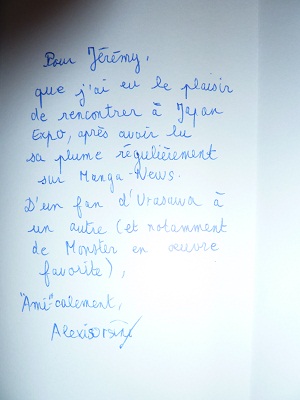 Pour Jérémy,
que j'ai eu le plaisir
de rencontrer à Japan
Expo, après avoir lu
sa plume régulièrement
sur Manga-News.
D'un fan d'Urasawa à
un autre (et notamment
de Monster en œuvre
favorite),
"Ami"calement,
Alexis Orsini